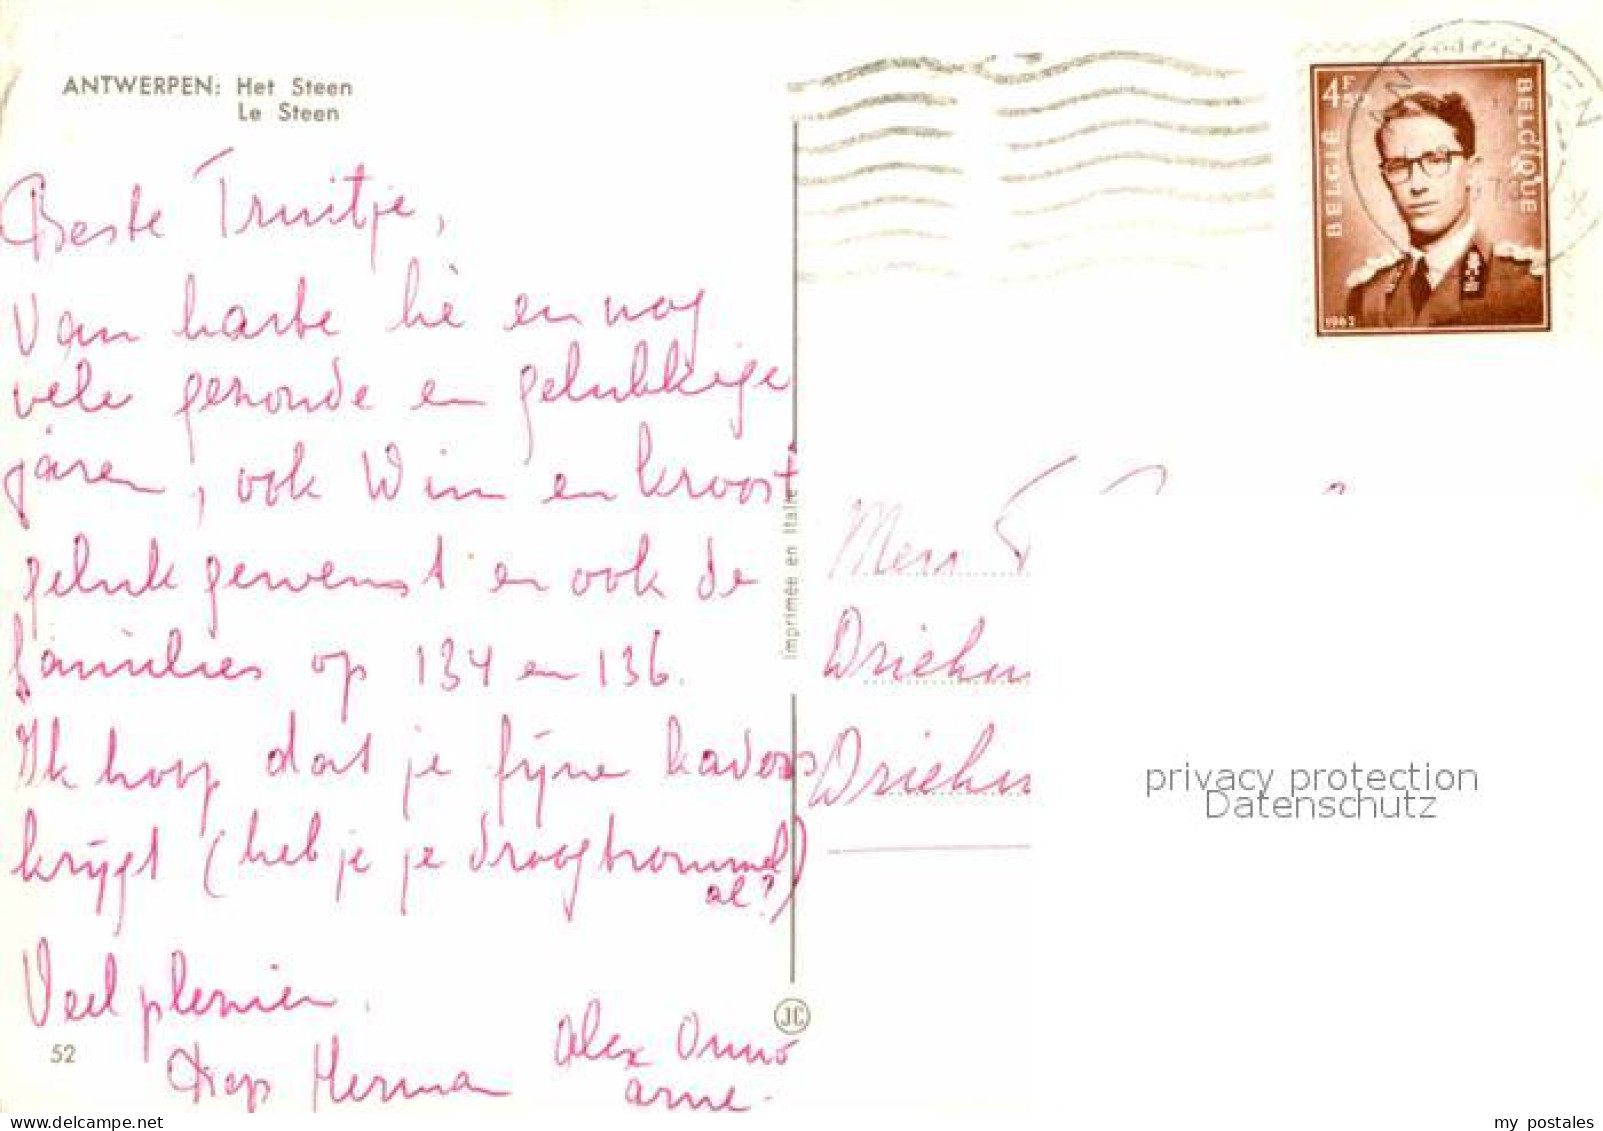 ANTWERPEN: Het Steen
Le Steen
Beste Truitje,
Van harte hè en nog
vele gezonde en gelukkige
jaren, ook Wim en kroost
geluk gewenst en ook de
families op 134 en 136.
Ik hoop dat je fijne kadoos
krijgt (heb je je droogtrommel
al?)
Veel plezier.
Herman
Alex Onno
Arne.
52
Imprimée en Italie
JC
4F50
BELGIË
BELGIQUE
1962
ANTWERPEN
X
Driehu
Driehu
privacy protection
Datenschutz
my postales